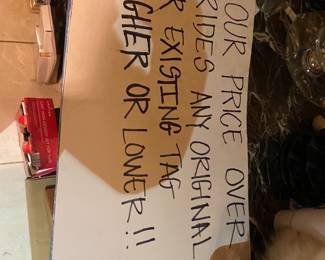 OUR PRICE OVER
RIDES ANY ORIGINAL
R EXISTING TAG
GHER OR LOWER!!